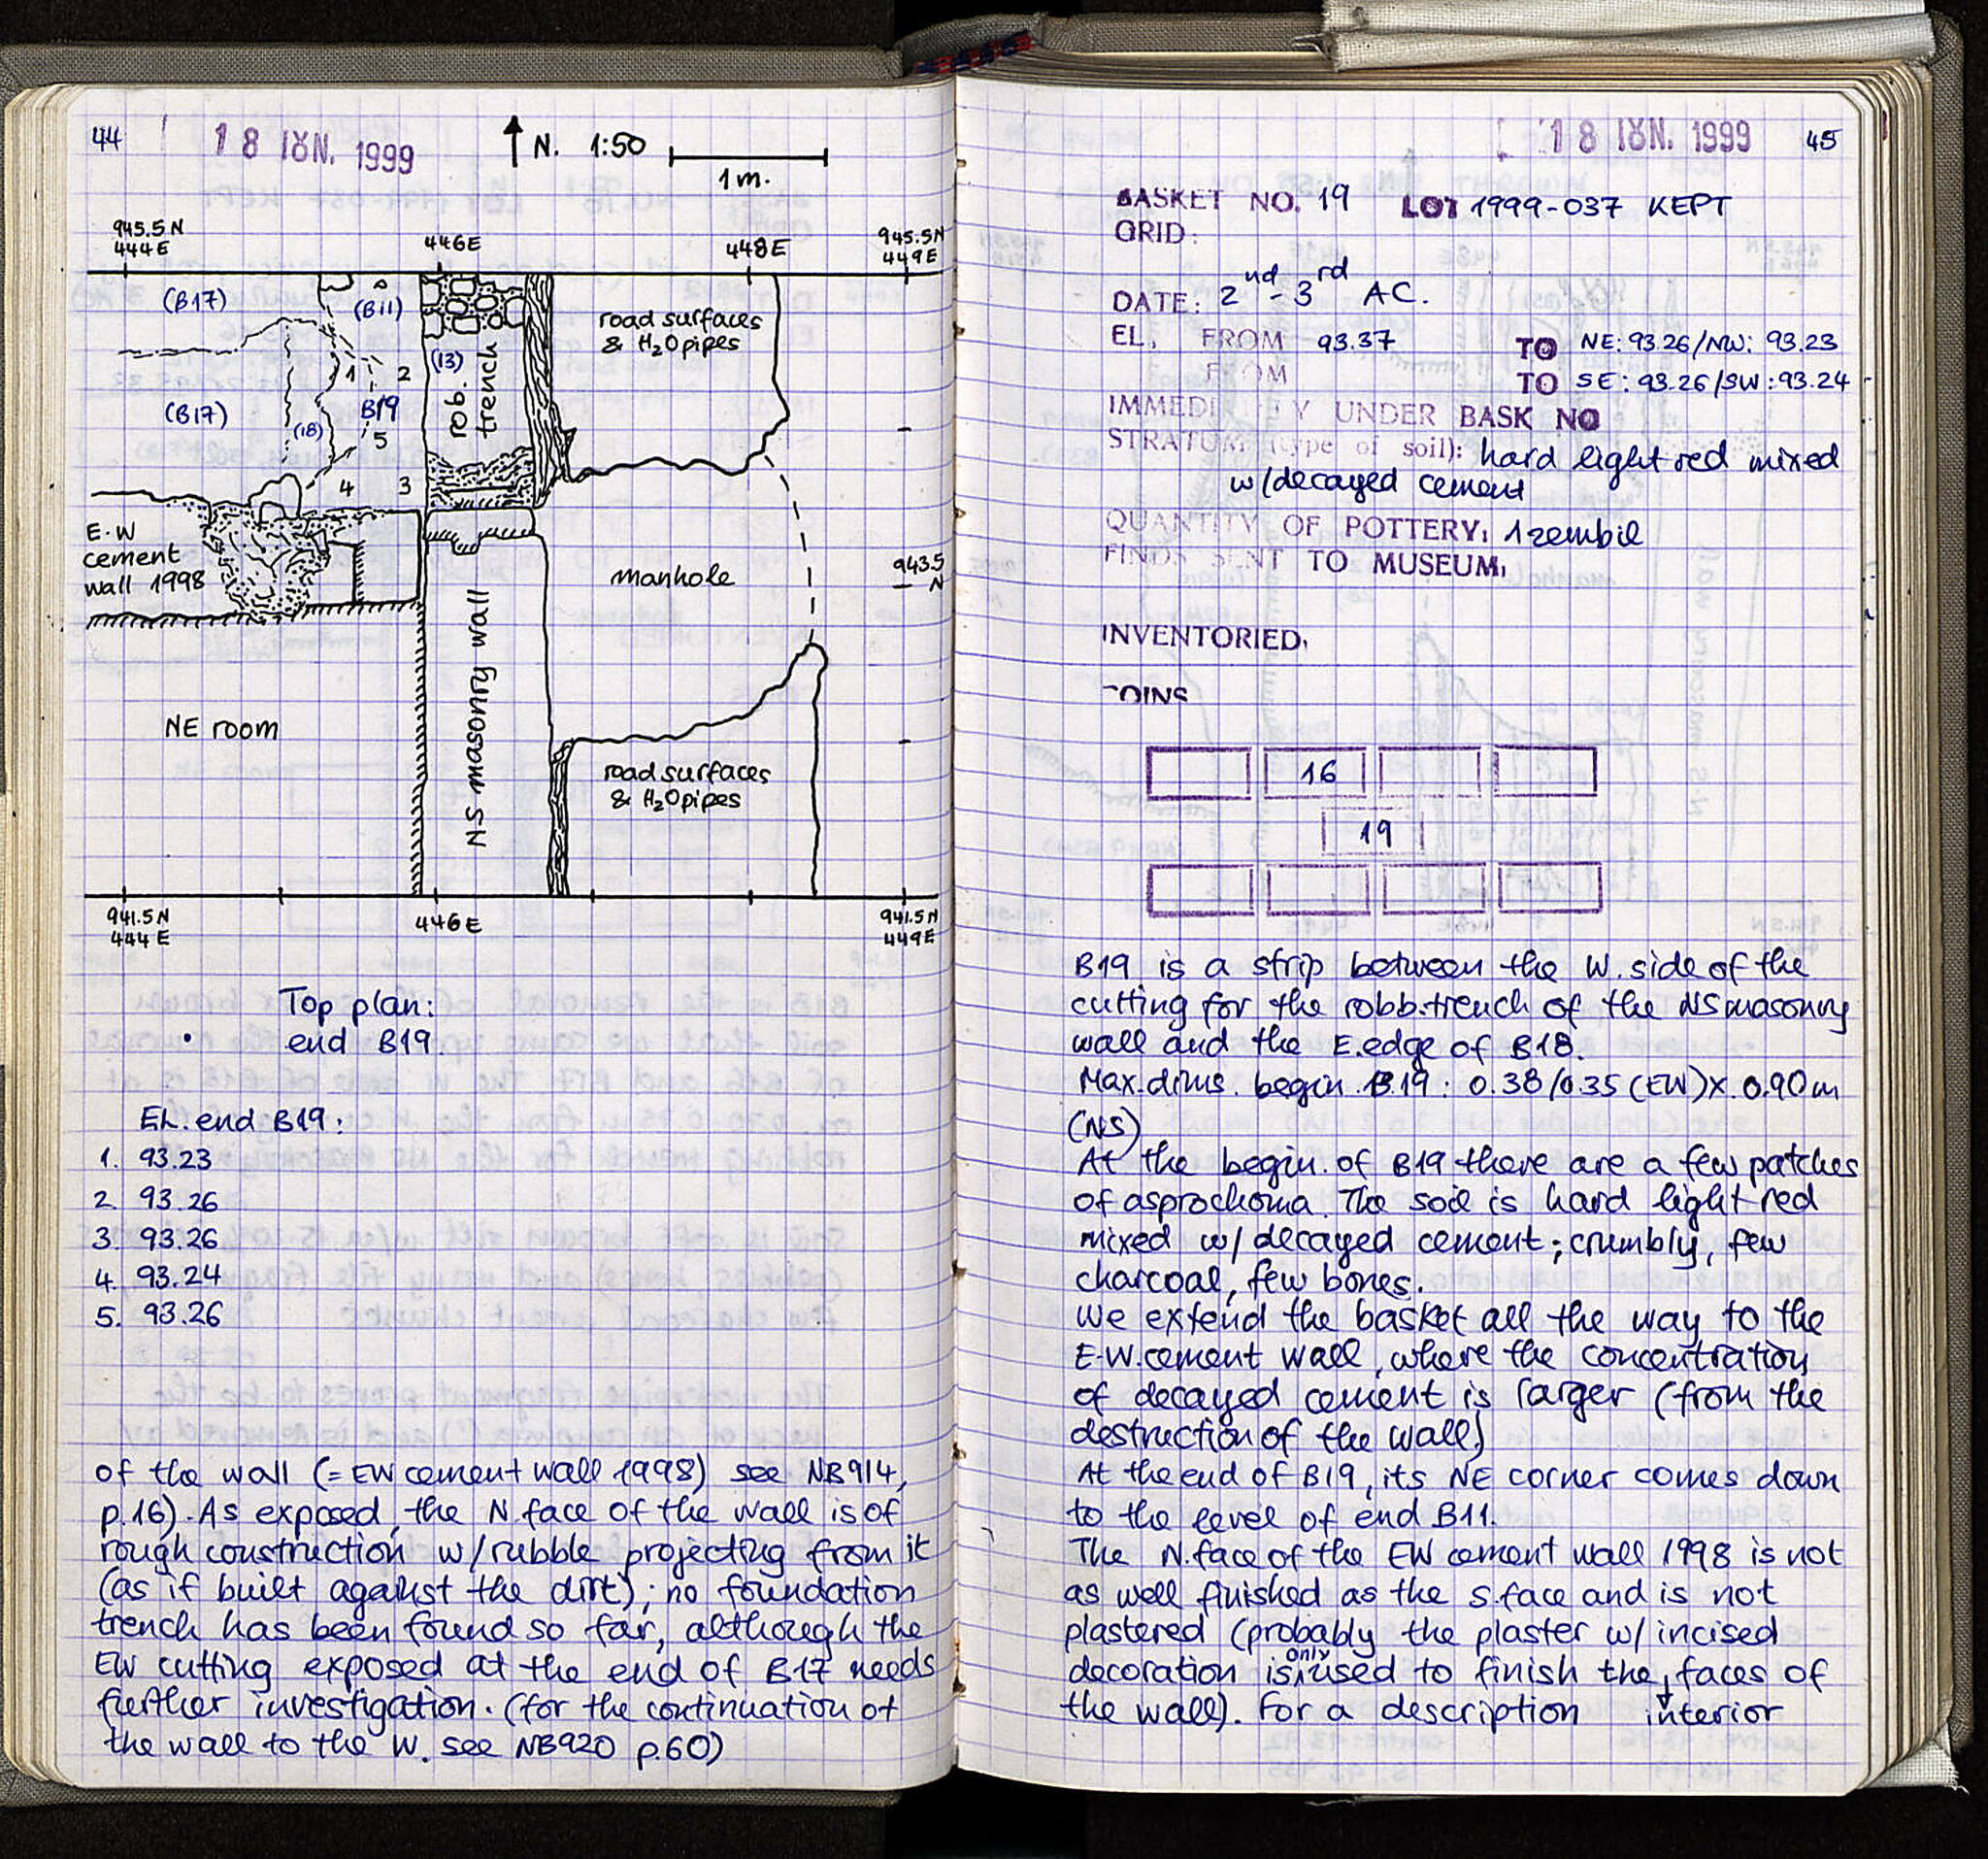 44
18 ΙΟΥΝ. 1999
N. 1:50
1m.
945.5N
444E
446E
448E
945.5N
449E
(B17)
(B11)
road surfaces
& H₂O pipes
(13)
rob.
trench
1
2
(B17)
B19
(18)
5
4
3
E-W
cement
wall 1998
manhole
943.5
N
N-S masonry wall
NE room
road surfaces
& H₂O pipes
941.5N
444E
446E
941.5N
449E
Top plan:
end B19.
EL. end B19:
1. 93.23
2. 93.26
3. 93.26
4. 93.24
5. 93.26
of the wall (= EW cement wall 1998) see NB914,
p.16). As exposed, the N. face of the wall is of
rough construction, w/rubble projecting from it
(as if built against the dirt); no foundation
trench has been found so far, although the
EW cutting exposed at the end of B17 needs
further investigation. (for the continuation of
the wall to the W. see NB920 p.60)
18 ΙΟΥΝ. 1999
45
BASKET NO. 19 LOT 1999-037 KEPT
GRID:
DATE: 2nd - 3rd AC.
EL. FROM 93.37 TO NE: 93.26/NW: 93.23
FROM TO SE: 93.26/SW: 93.24
IMMEDI EY UNDER BASK NO
STRATUM (type of soil): hard light red mixed
w/decayed cement
QUANTITY OF POTTERY: 1 zembil
FINDS SENT TO MUSEUM:
INVENTORIED:
COINS
16
19
B19 is a strip between the W. side of the
cutting for the robb. trench of the NS masonry
wall and the E. edge of B18.
Max. dims. begin. B.19: 0.38/0.35 (EW) x 0.90m
(NS)
At the begin. of B19 there are a few patches
of asprochoma. The soil is hard light red
mixed w/ decayed cement; crumbly, few
charcoal, few bones.
We extend the basket all the way to the
E-W. cement wall, where the concentration
of decayed cement is larger (from the
destruction of the wall)
At the end of B19, its NE corner comes down
to the level of end B11.
The N. face of the EW cement wall 1998 is not
as well finished as the S. face and is not
plastered (probably the plaster w/ incised
decoration is only used to finish the interior faces of
the wall). For a description